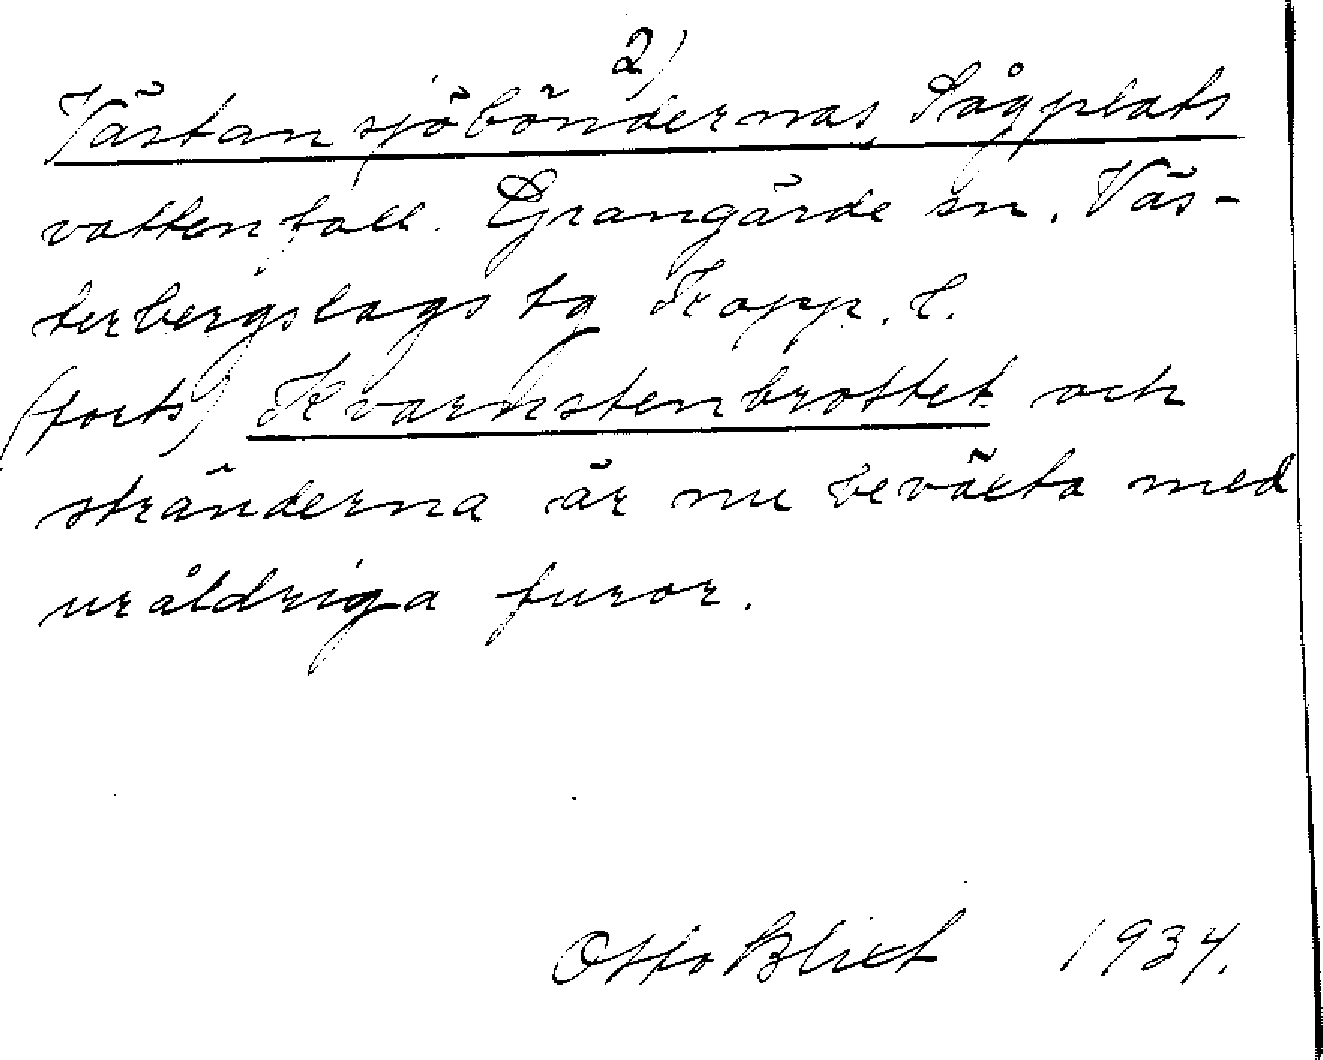 2)
Västansjöböndernas Sågplats
vattenfall. Grangärde sn. Väs-
terbergslags tg Kopp. l.
(forts) Kvarnstenbrottet och
stränderna är nu beväxta med
uråldriga furor.
Otto Blixt 1934.